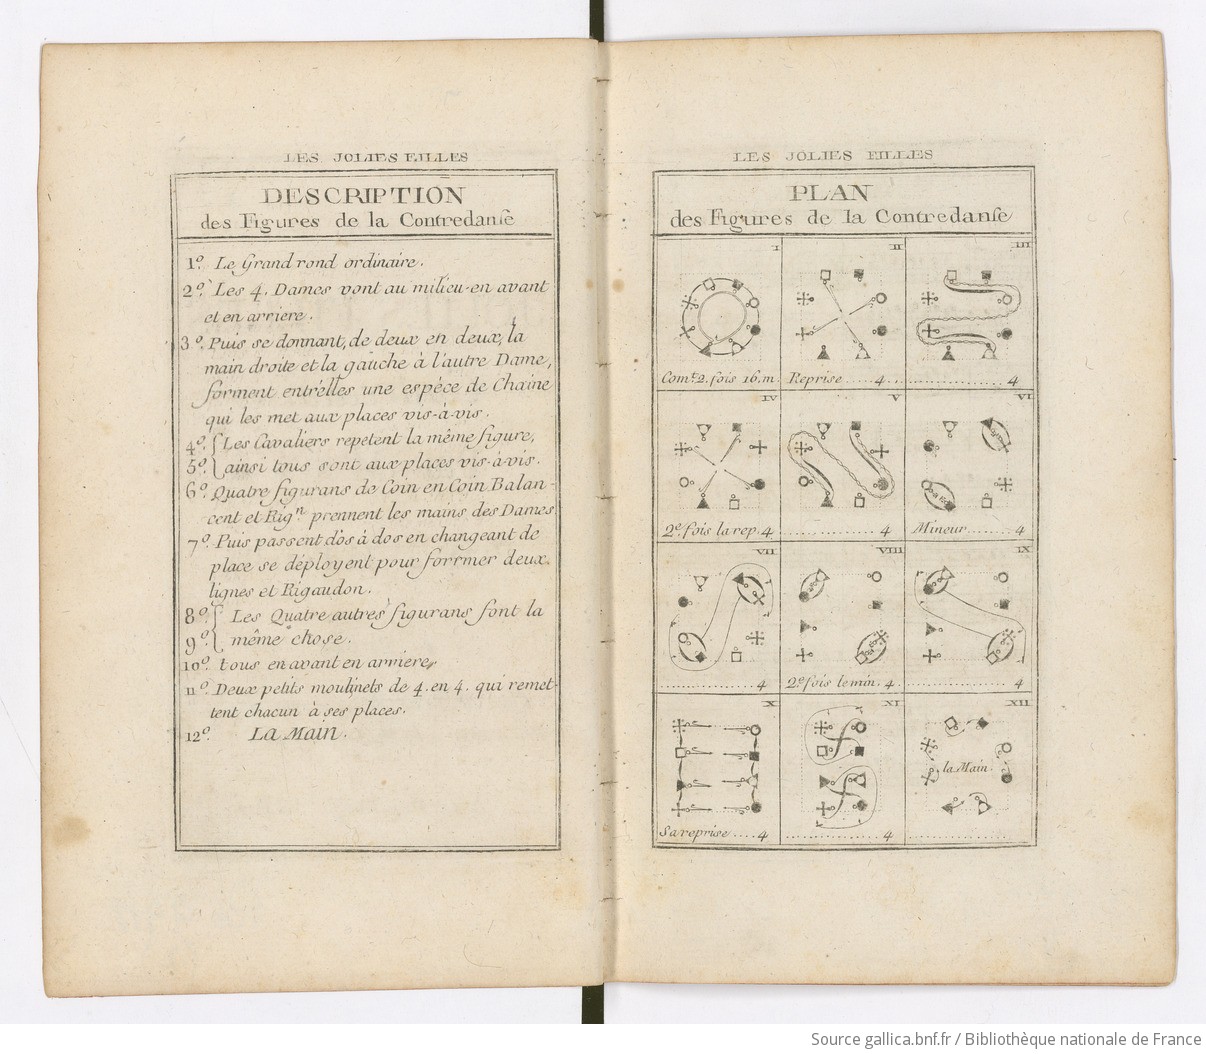 LES JOLIES FILLES
DESCRIPTION
des Figures de la Contredanse
1.º Le Grand rond ordinaire.
2.º Les 4. Dames vont au milieu en avant
et en arriere.
3.º Puis se donnant, de deux en deux, la
main droite et la gauche à l'autre Dame,
forment entr'elles une espéce de Chaine
qui les met aux places vis-à-vis.
4.º { Les Cavaliers repetent la même figure,
5.º { ainsi tous sont aux places vis-à-vis.
6.º Quatre figurans de Coin en Coin Balan-
cent et Rig.n prennent les mains des Dames
7.º Puis passent dos à dos en changeant de
place se déployent pour forrmer deux
lignes et Rigaudon.
8.º { Les Quatre autres figurans font la
9.º { même chose.
10.º tous en avant en arriere,
11.º Deux petits moulinets de 4. en 4. qui remet-
tent chacun à ses places.
12.º La Main.
LES JOLIES FILLES
PLAN
des Figures de la Contredanse
I II III
Com.t 2. fois 16. m. Reprise ..... 4. ............... 4
IV V VI
2.e fois la rep. 4 ............ 4 Mineur ....... 4
VII VIII IX
............... 4 2.e fois le min. 4. ............... 4
X XI XII
la Main.
Sa reprise .... 4 ............ 4
Source gallica.bnf.fr / Bibliothèque nationale de France